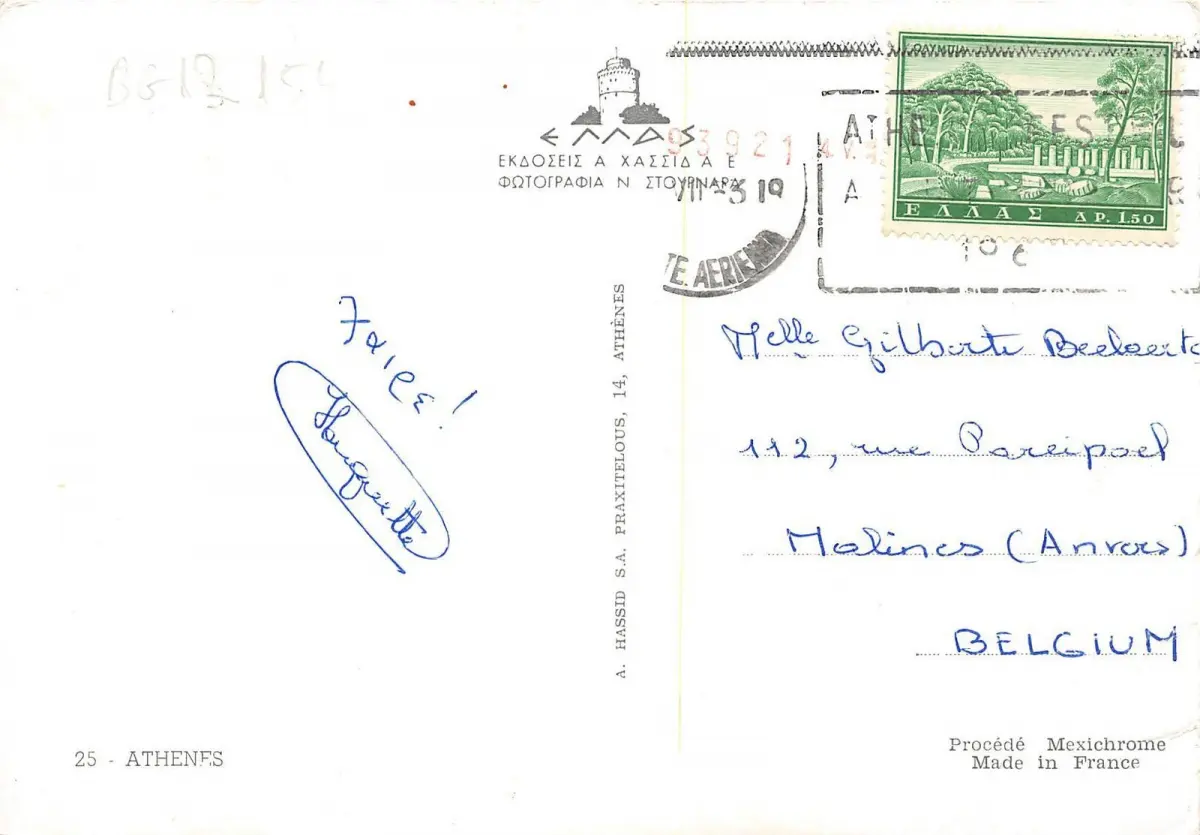 BG12 15
ΕΛΛΑΣ
ΕΚΔΟΣΕΙΣ Α ΧΑΣΣΙΔ Α Ε
ΦΩΤΟΓΡΑΦΙΑ Ν ΣΤΟΥΡΝΑΡΑ
93921
VII-3 19
TE. AERIENNE
ΟΛΥΜΠΙΑ
ΕΛΛΑΣ ΔΡ. 1.50
ATHE
Χαιρε!
Huguette
A. HASSID S.A. PRAXITELOUS, 14, ATHÈNES
Melle Gilberte Beelaerts
112, rue Pareipoel
Malines (Anvers)
BELGIUM
25 - ATHENES
Procédé Mexichrome
Made in France